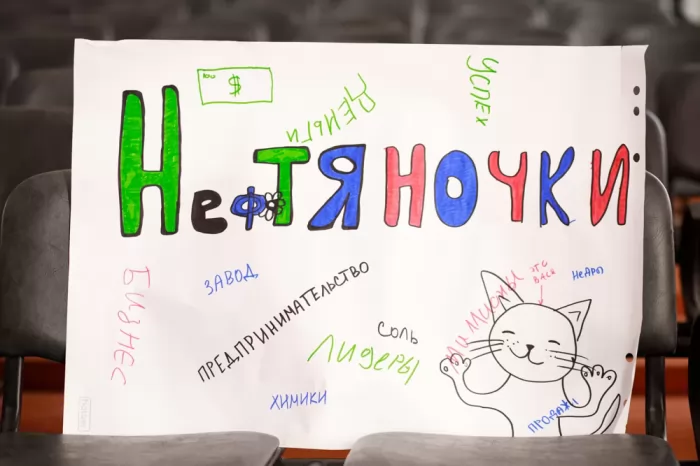 100
$
ДЕНЬГИ
УСПЕХ
НефТЯНОЧКИ
БИЗНЕС
ЗАВОД
ПРЕДПРИНИМАТЕЛЬСТВО
СОЛЬ
Лидеры
ХИМИКИ
МиМиМы
ЭТО
ВАСЯ
НЕАРЫ
ПРОДАЖИ